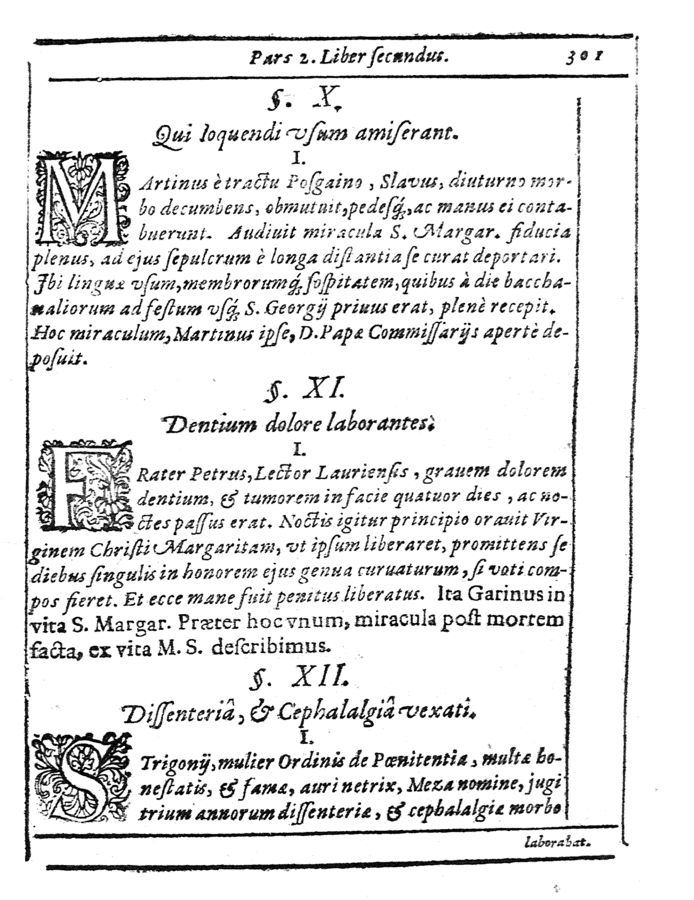 Pars 2. Liber ſecundus. 301
§. X.
Qui loquendi vſum amiſerant.
I.
MArtinus è tractu Poſgaino, Slavus, diuturno mor-
bo decumbens, obmutuit, pedeſq́;, ac manus ei conta-
buerunt. Audiuit miracula S. Margar. fiducia
plenus, ad ejus ſepulcrum è longa diſtantia ſe curat deportari.
Ibi linguæ vſum, membrorumq́; ſoſpitatem, quibus à die baccha-
naliorum ad feſtum vſq́; S. Georgij priuus erat, plenè recepit.
Hoc miraculum, Martinus ipſe, D. Papæ Commiſſarijs apertè de-
poſuit.
§. XI.
Dentium dolore laborantes.
I.
FRater Petrus, Lector Laurienſis, grauem dolorem
dentium, & tumorem in facie quatuor dies, ac no-
ctes paſſus erat. Noctis igitur principio orauit Vir-
ginem Chriſti Margaritam, vt ipſum liberaret, promittens ſe
diebus ſingulis in honorem ejus genua curuaturum, ſi voti com-
pos fieret. Et ecce mane fuit penitus liberatus. Ita Garinus in
vita S. Margar. Præter hoc vnum, miracula poſt mortem
facta, ex vita M. S. deſcribimus.
§. XII.
Diſſenteriâ, & Cephalalgiâ vexati.
I.
STrigonij, mulier Ordinis de Pœnitentia, multæ ho-
neſtatis, & famæ, auri netrix, Meza nomine, jugi
trium annorum diſſenteriæ, & cephalalgiæ morbo
laborabat.